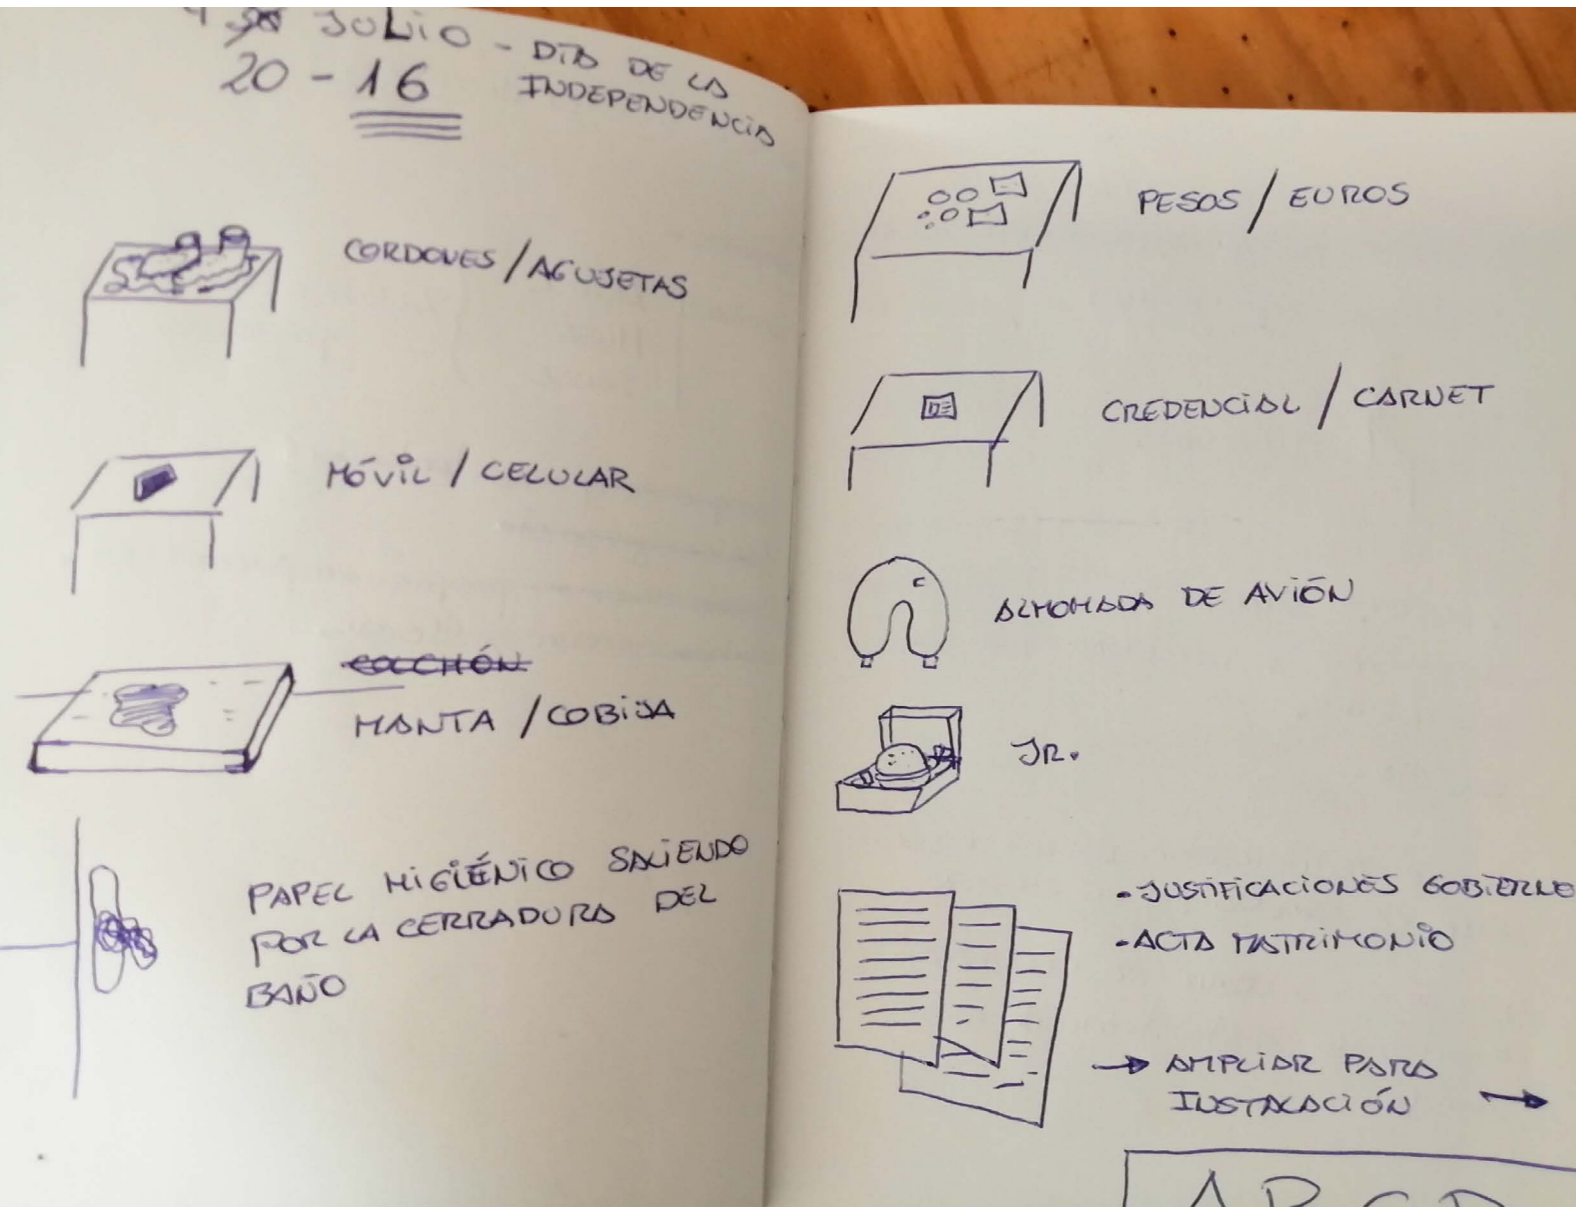 4 JULIO - DÍA DE LA
20 - 16 INDEPENDENCIA
CORDONES / AGUJETAS
MÓVIL / CELULAR
COLCHÓN
MANTA / COBIJA
PAPEL HIGIÉNICO SALIENDO
POR LA CERRADURA DEL
BAÑO
PESOS / EUROS
CREDENCIAL / CARNET
ALMOHADA DE AVIÓN
JR.
- JUSTIFICACIONES GOBIERNO
- ACTA MATRIMONIO
→ AMPLIAR PARA
INSTALACIÓN →
A B C D